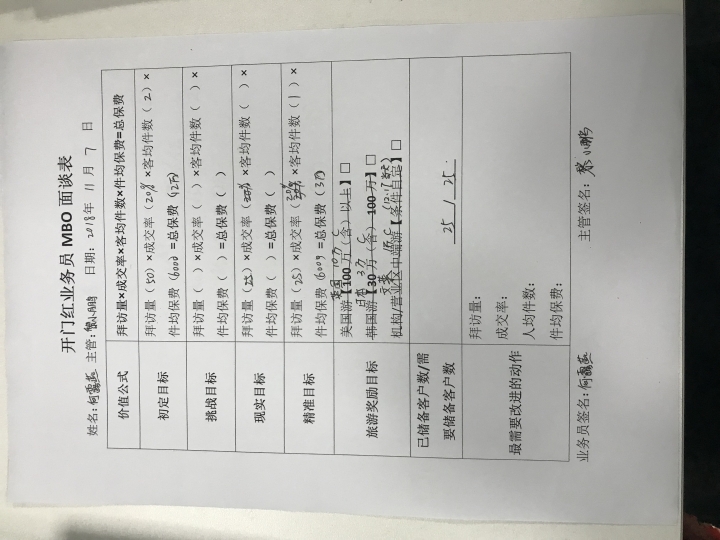 开门红业务员 MBO 面谈表
姓名：何 主管： 小鹏 日期：2018年 11 月 7 日
价值公式 拜访量×成交率×客均件数×件均保费=总保费
初定目标 拜访量（50）×成交率（20%）×客均件数（2）×
件均保费（6000）=总保费（12万）
挑战目标 拜访量（ ）×成交率（ ）×客均件数（ ）×
件均保费（ ）=总保费（ ）
现实目标 拜访量（25）×成交率（20%）×客均件数（ ）×
件均保费（ ）=总保费（ ）
精准目标 拜访量（25）×成交率（20%）×客均件数（1）×
件均保费（6000）=总保费（3万）
英国 10万 C
旅游奖励目标 美国游【100 万（含）以上】□
日本 3万 C
韩国游【30 万（含）100 万】□
机构/营业区中端游【条件自定】□
已储备客户数/需要储备客户数 25 / 25
最需要改进的动作 拜访量：
成交率：
人均件数：
件均保费：
业务员签名：何 主管签名： 小鹏